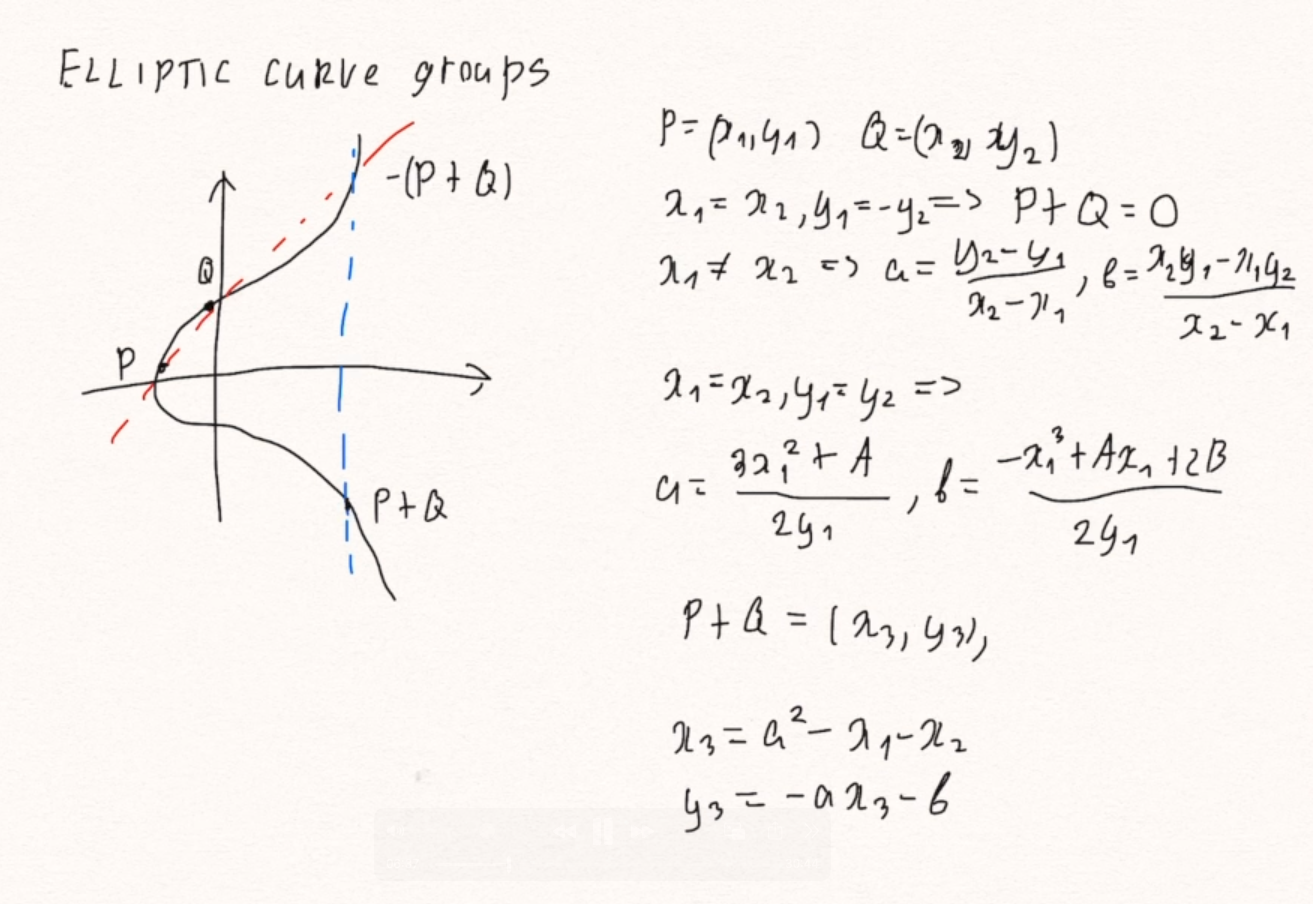 ELLIPTIC curve groups
-(P + Q)
Q
P
P+Q
P=(x₁,y₁) Q=(x₂, y₂)
x₁= x₂, y₁=-y₂=> P+Q=0
x₁ ≠ x₂ => a= (y₂-y₁)/(x₂-x₁), b= (x₂y₁-x₁y₂)/(x₂-x₁)
x₁=x₂, y₁=y₂ =>
a= (3x₁²+A)/(2y₁), b= (-x₁³+Ax₁+2B)/(2y₁)
P+Q = (x₃, y₃),
x₃=a²-x₁-x₂
y₃=-ax₃-b